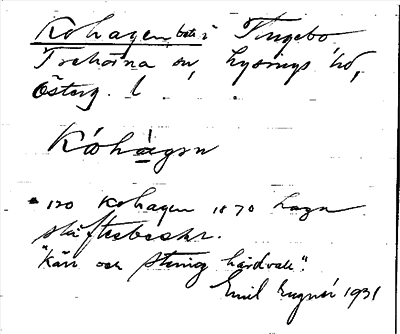 Kohagen bete i Tingebo
Trehörna sn, Lysings hd,
Österg. l.
Kóhàgen
120 Kohagen 1870 haga
skiftesbeskr.
"Kärr och stenig hårdvall".
Emil Lugner 1931